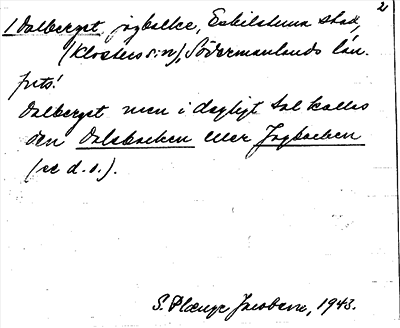 2
1 Dalberget, jogbacke, Eskilstuna stad,
(Klosters s:n), Södermanlands län.
forts!
Dalberget men i dagligt tal kallas
den Dalsbacken eller Jogbacken
(se d. o.).
S. Plænge Jacobson, 1943.